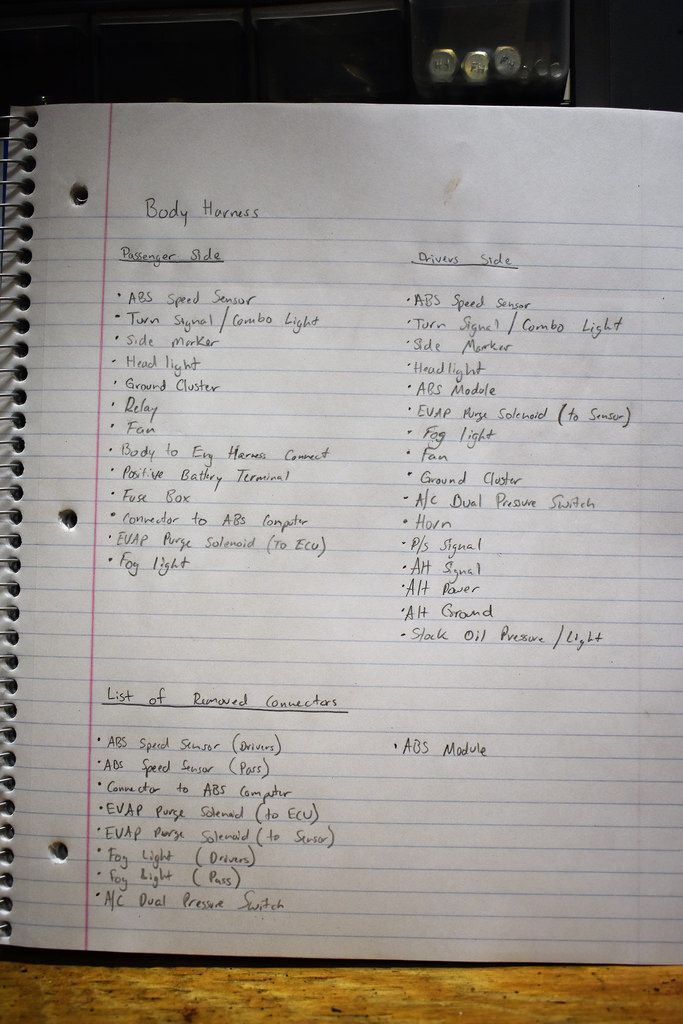 Body Harness
Passenger Side
• ABS Speed Sensor
• Turn Signal / Combo Light
• Side Marker
• Headlight
• Ground Cluster
• Relay
• Fan
• Body to Eng Harness Connect
• Positive Battery Terminal
• Fuse Box
• Connector to ABS Computer
• EVAP Purge Solenoid (To ECU)
• Fog light
Drivers Side
• ABS Speed Sensor
• Turn Signal / Combo Light
• Side Marker
• Headlight
• ABS Module
• EVAP Purge Solenoid (to Sensor)
• Fog light
• Fan
• Ground Cluster
• A/C Dual Pressure Switch
• Horn
• P/s Signal
• Alt Signal
• Alt Power
• Alt Ground
• Stock Oil Pressure / Light
List of Removed Connectors
• ABS Speed Sensor (Drivers)
• ABS Speed Sensor (Pass)
• Connector to ABS Computer
• EVAP Purge Solenoid (to ECU)
• EVAP Purge Solenoid (to Sensor)
• Fog Light (Drivers)
• Fog Light (Pass)
• A/C Dual Pressure Switch
• ABS Module